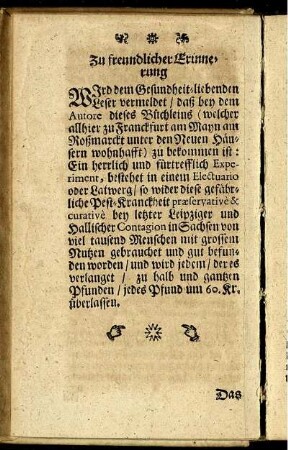 Zu freundlicher Erinne-
rung
WIrd dem Gesundheit-liebenden
Leser vermeldet / daß bey dem
Autore dieses Büchleins (welcher
allhier zu Franckfurt am Mayn am
Roßmarckt unter den Neuen Häu-
sern wohnhafft) zu bekommen ist:
Ein herrlich und fürtrefflich Expe-
riment, bestehet in einem Electuario
oder Latwerg / so wider diese gefähr-
liche Pest-Kranckheit præservativè &
curativè bey letzter Leipziger und
Hallischer Contagion in Sachsen von
viel tausend Menschen mit grossem
Nutzen gebrauchet und gut befun-
den worden / und wird jedem / der es
verlanget / zu halb und gantzen
Pfunden / jedes Pfund um 60. Kr.
überlassen.
Das